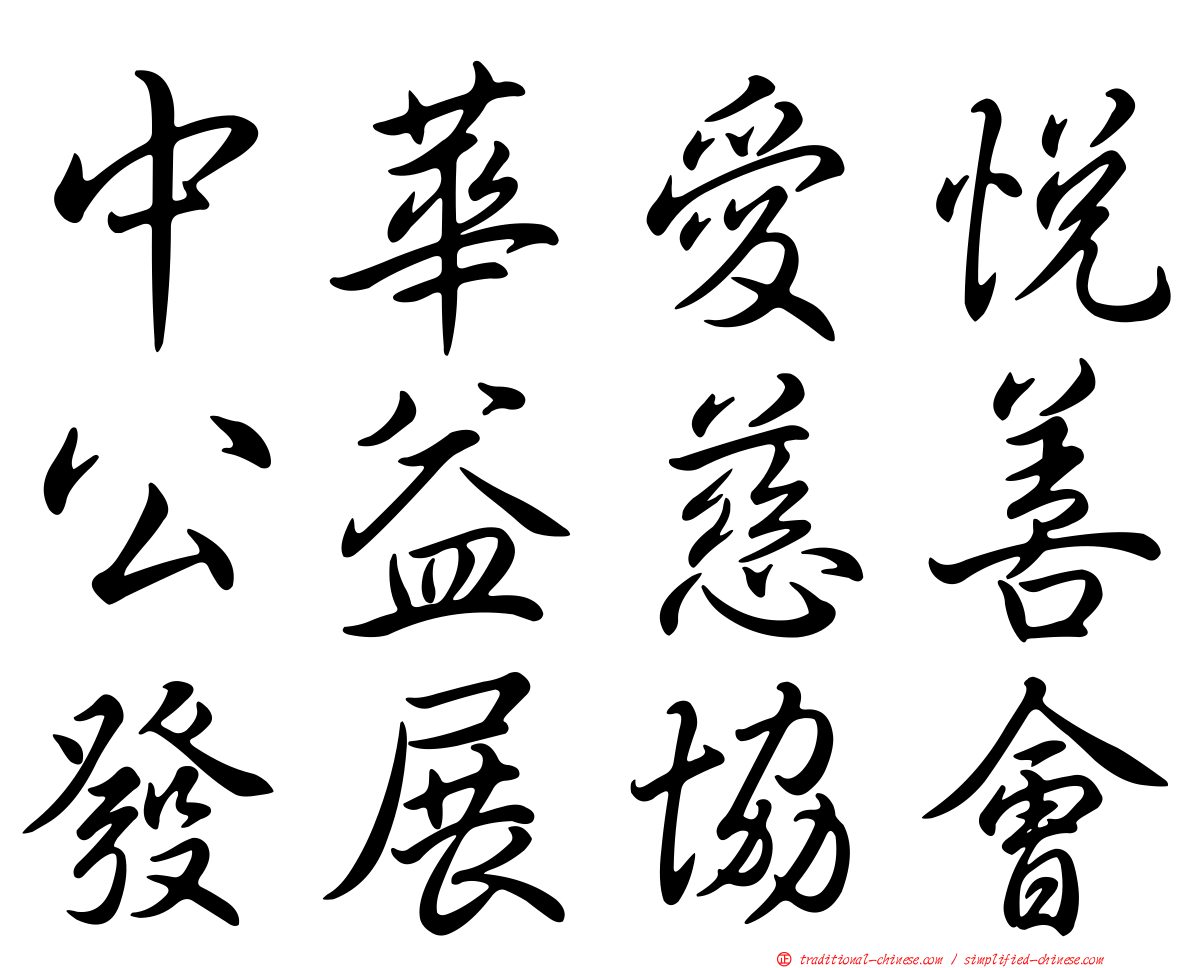 中華愛悅
公益慈善
發展協會
正 traditional-chinese.com / simplified-chinese.com